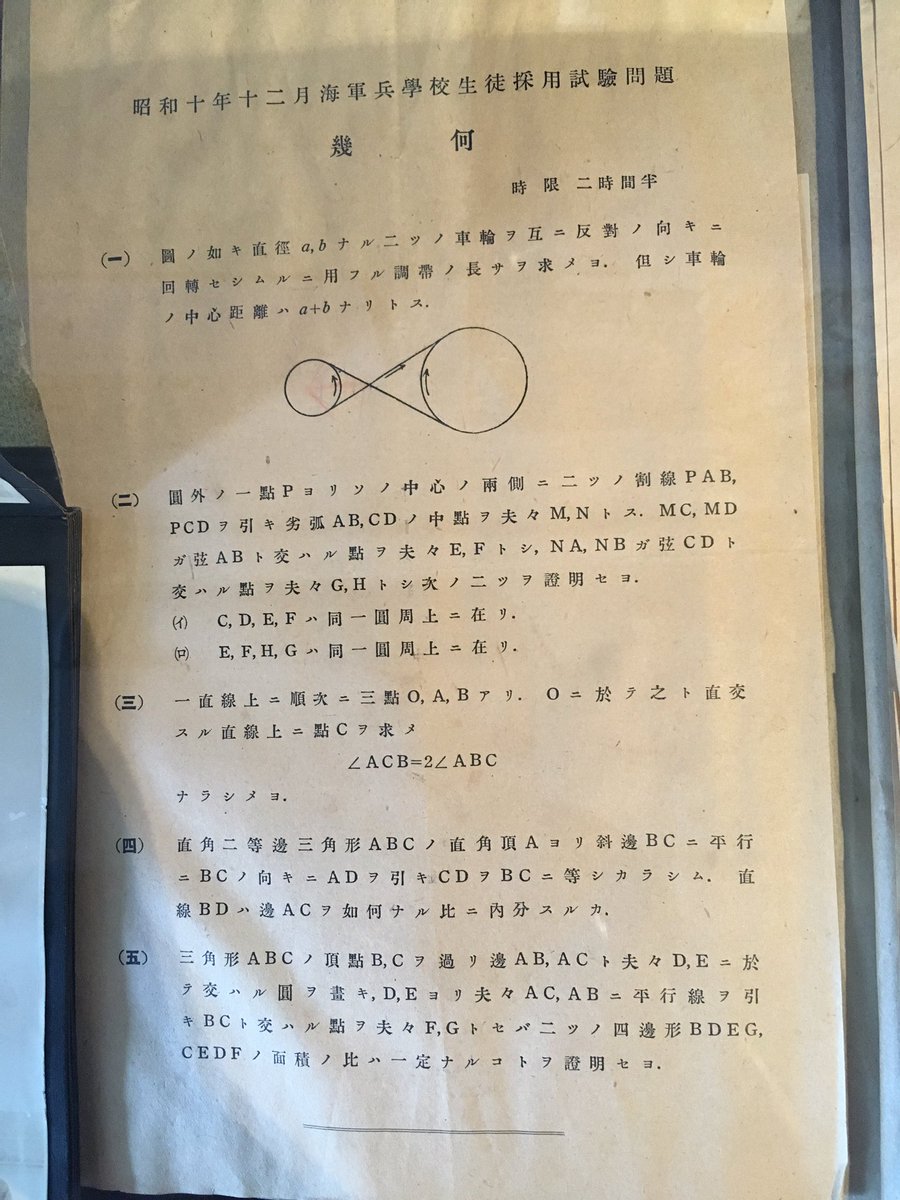 昭和十年十二月海軍兵學校生徒採用試驗問題
幾何
時限 二時間半
(一) 圖ノ如キ直徑a,bナル二ツノ車輪ヲ互ニ反對ノ向キニ
回轉セシムルニ用フル調帶ノ長サヲ求メヨ. 但シ車輪
ノ中心距離ハa+bナリトス.
(二) 圓外ノ一點Pヨリソノ中心ノ兩側ニ二ツノ割線PAB,
PCDヲ引キ劣弧AB,CDノ中點ヲ夫々M,Nトス. MC,MD
ガ弦ABト交ハル點ヲ夫々E,Fトシ,NA,NBガ弦CDト
交ハル點ヲ夫々G,Hトシ次ノ二ツヲ證明セヨ.
(イ) C,D,E,Fハ同一圓周上ニ在リ.
(ロ) E,F,H,Gハ同一圓周上ニ在リ.
(三) 一直線上ニ順次ニ三點O,A,Bアリ. Oニ於テ之ト直交
スル直線上ニ點Cヲ求メ
∠ACB=2∠ABC
ナラシメヨ.
(四) 直角二等邊三角形ABCノ直角頂Aヨリ斜邊BCニ平行
ニBCノ向キニADヲ引キCDヲBCニ等シカラシム. 直
線BDハ邊ACヲ如何ナル比ニ內分スルカ.
(五) 三角形ABCノ頂點B,Cヲ過リ邊AB,ACト夫々D,Eニ於
テ交ハル圓ヲ畫キ,D,Eヨリ夫々AC,ABニ平行線ヲ引
キBCト交ハル點ヲ夫々F,Gトセバ二ツノ四邊形BDEG,
CEDFノ面積ノ比ハ一定ナルコトヲ證明セヨ.